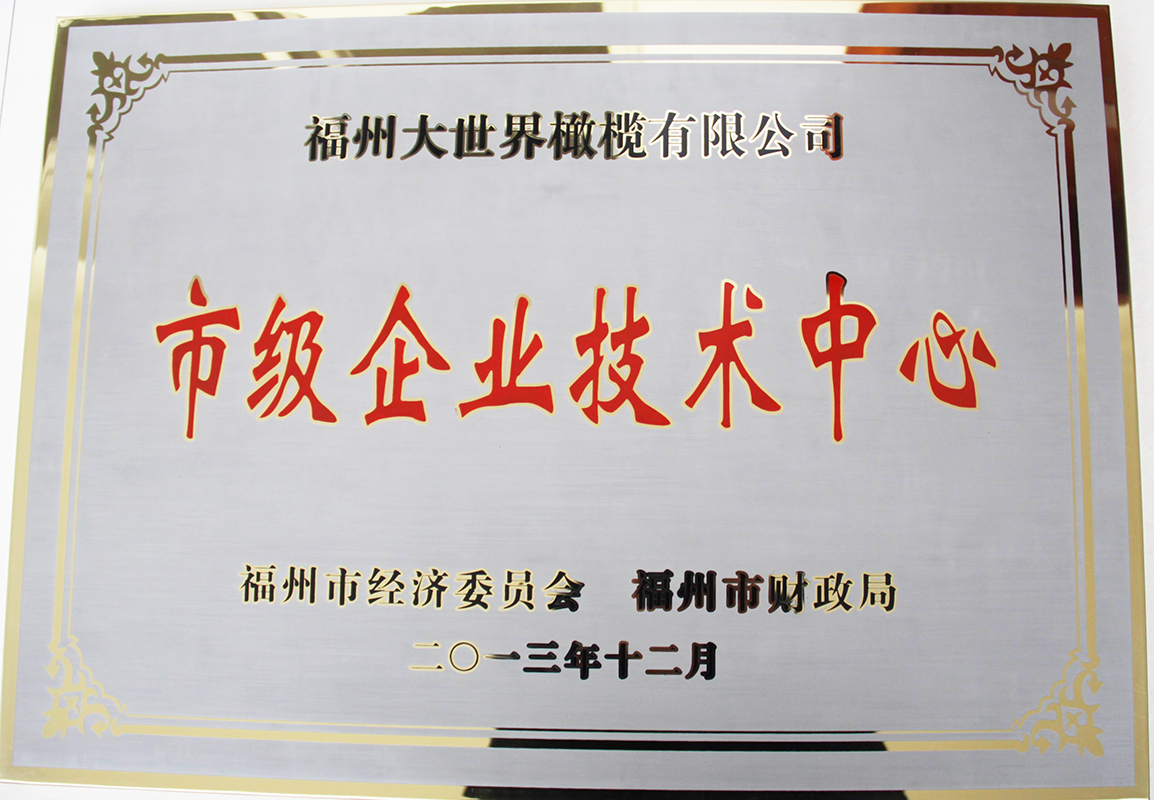 福州大世界橄榄有限公司
市级企业技术中心
福州市经济委员会 福州市财政局
二〇一三年十二月